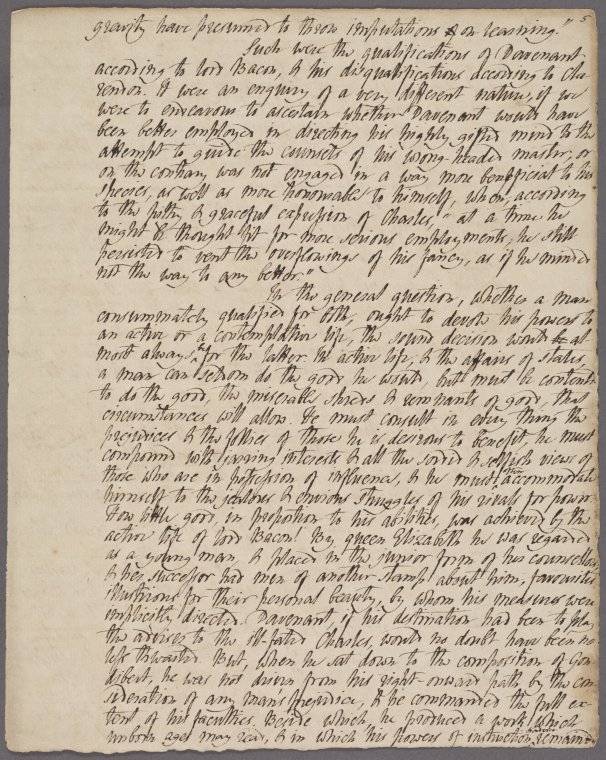 gravity have presumed to throw imputations on learning." 5
Such were the qualifications of Davenant
according to lord Bacon, & his disqualifications according to Cla-
rendon. It were an enquiry of a very different nature, if we
were to endeavour to ascertain whether Davenant would have
been better employed in directing his highly gifted mind to the
attempt to guide the counsels of his wrong-headed master, or
on the contrary was not engaged in a way more beneficial to his
species, as well as more honourable to himself, when, according
to the pithy & graceful expression of Charles, "at a time he
might be thought fit for more serious employments, he still
persisted to vent the overflowings of his fancy, as if he minded
not the way to any better."
In the general question, whether a man
consummately qualified for both, ought to devote his powers to
an active or a contemplative life, the sound decision would al-
most always be for the latter. In active life, & the affairs of states,
a man can seldom do the good he would, but must be contented
to do the good, the miserable shreds & remnants of good, that
circumstances will allow. He must consult in every thing the
prejudices & the follies of those he is desirous to benefit he must
compound with jarring interests & all the sordid & selfish views of
those who are in possession of influence, & he must accommodate
himself to the jealous & envious struggles of his rivals for power.
How little good, in proportion to his abilities, was achieved by the
active life of lord Bacon! By queen Elizabeth he was regarded
as a young man, & placed in the junior form of her counsellors,
& her successor had men of another stamp about him, favourites
illustrious for their personal beauty, by whom his measures were
implicitly directed. Davenant, if his destination had been to play
the adviser to the ill-fated Charles, would no doubt have been no
less thwarted. But, when he sat down to the composition of Gon-
dibert, he was not driven from his right-onward path by the con-
sideration of any man's prejudice, & he commanded the full ex-
tent of his faculties. Beside which, he produced a work, which
unborn ages may read, & in which his powers of instruction remain